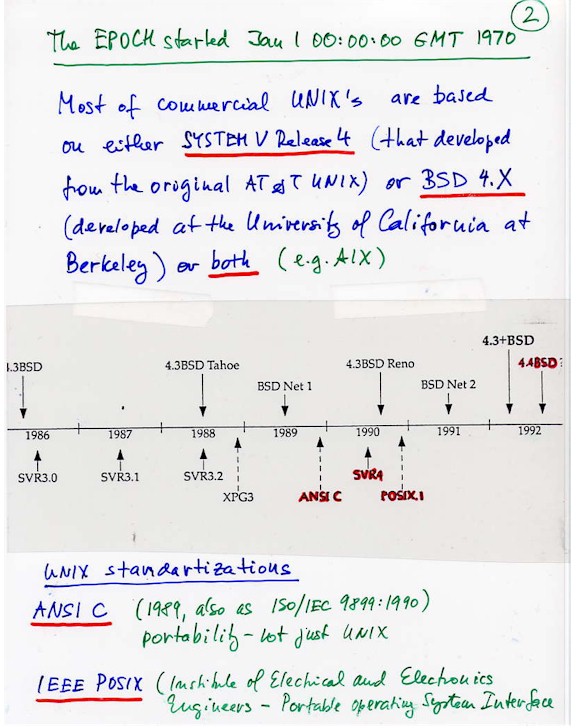 2
The EPOCH started Jan 1 00:00:00 GMT 1970
Most of commercial UNIX's are based
on either SYSTEM V Release 4 (that developed
from the original AT&T UNIX) or BSD 4.X
(developed at the University of California at
Berkeley) or both (e.g. AIX)
4.3+BSD
4.3BSD 4.3BSD Tahoe 4.3BSD Reno 4.4BSD?
BSD Net 1 BSD Net 2
1986 1987 1988 1989 1990 1991 1992
SVR3.0 SVR3.1 SVR3.2 SVR4
XPG3 ANSI C POSIX.1
UNIX standartizations
ANSI C (1989, also as ISO/IEC 9899:1990)
portability - not just UNIX
IEEE POSIX (Institute of Electrical and Electronics
Engineers - Portable operating System Interface